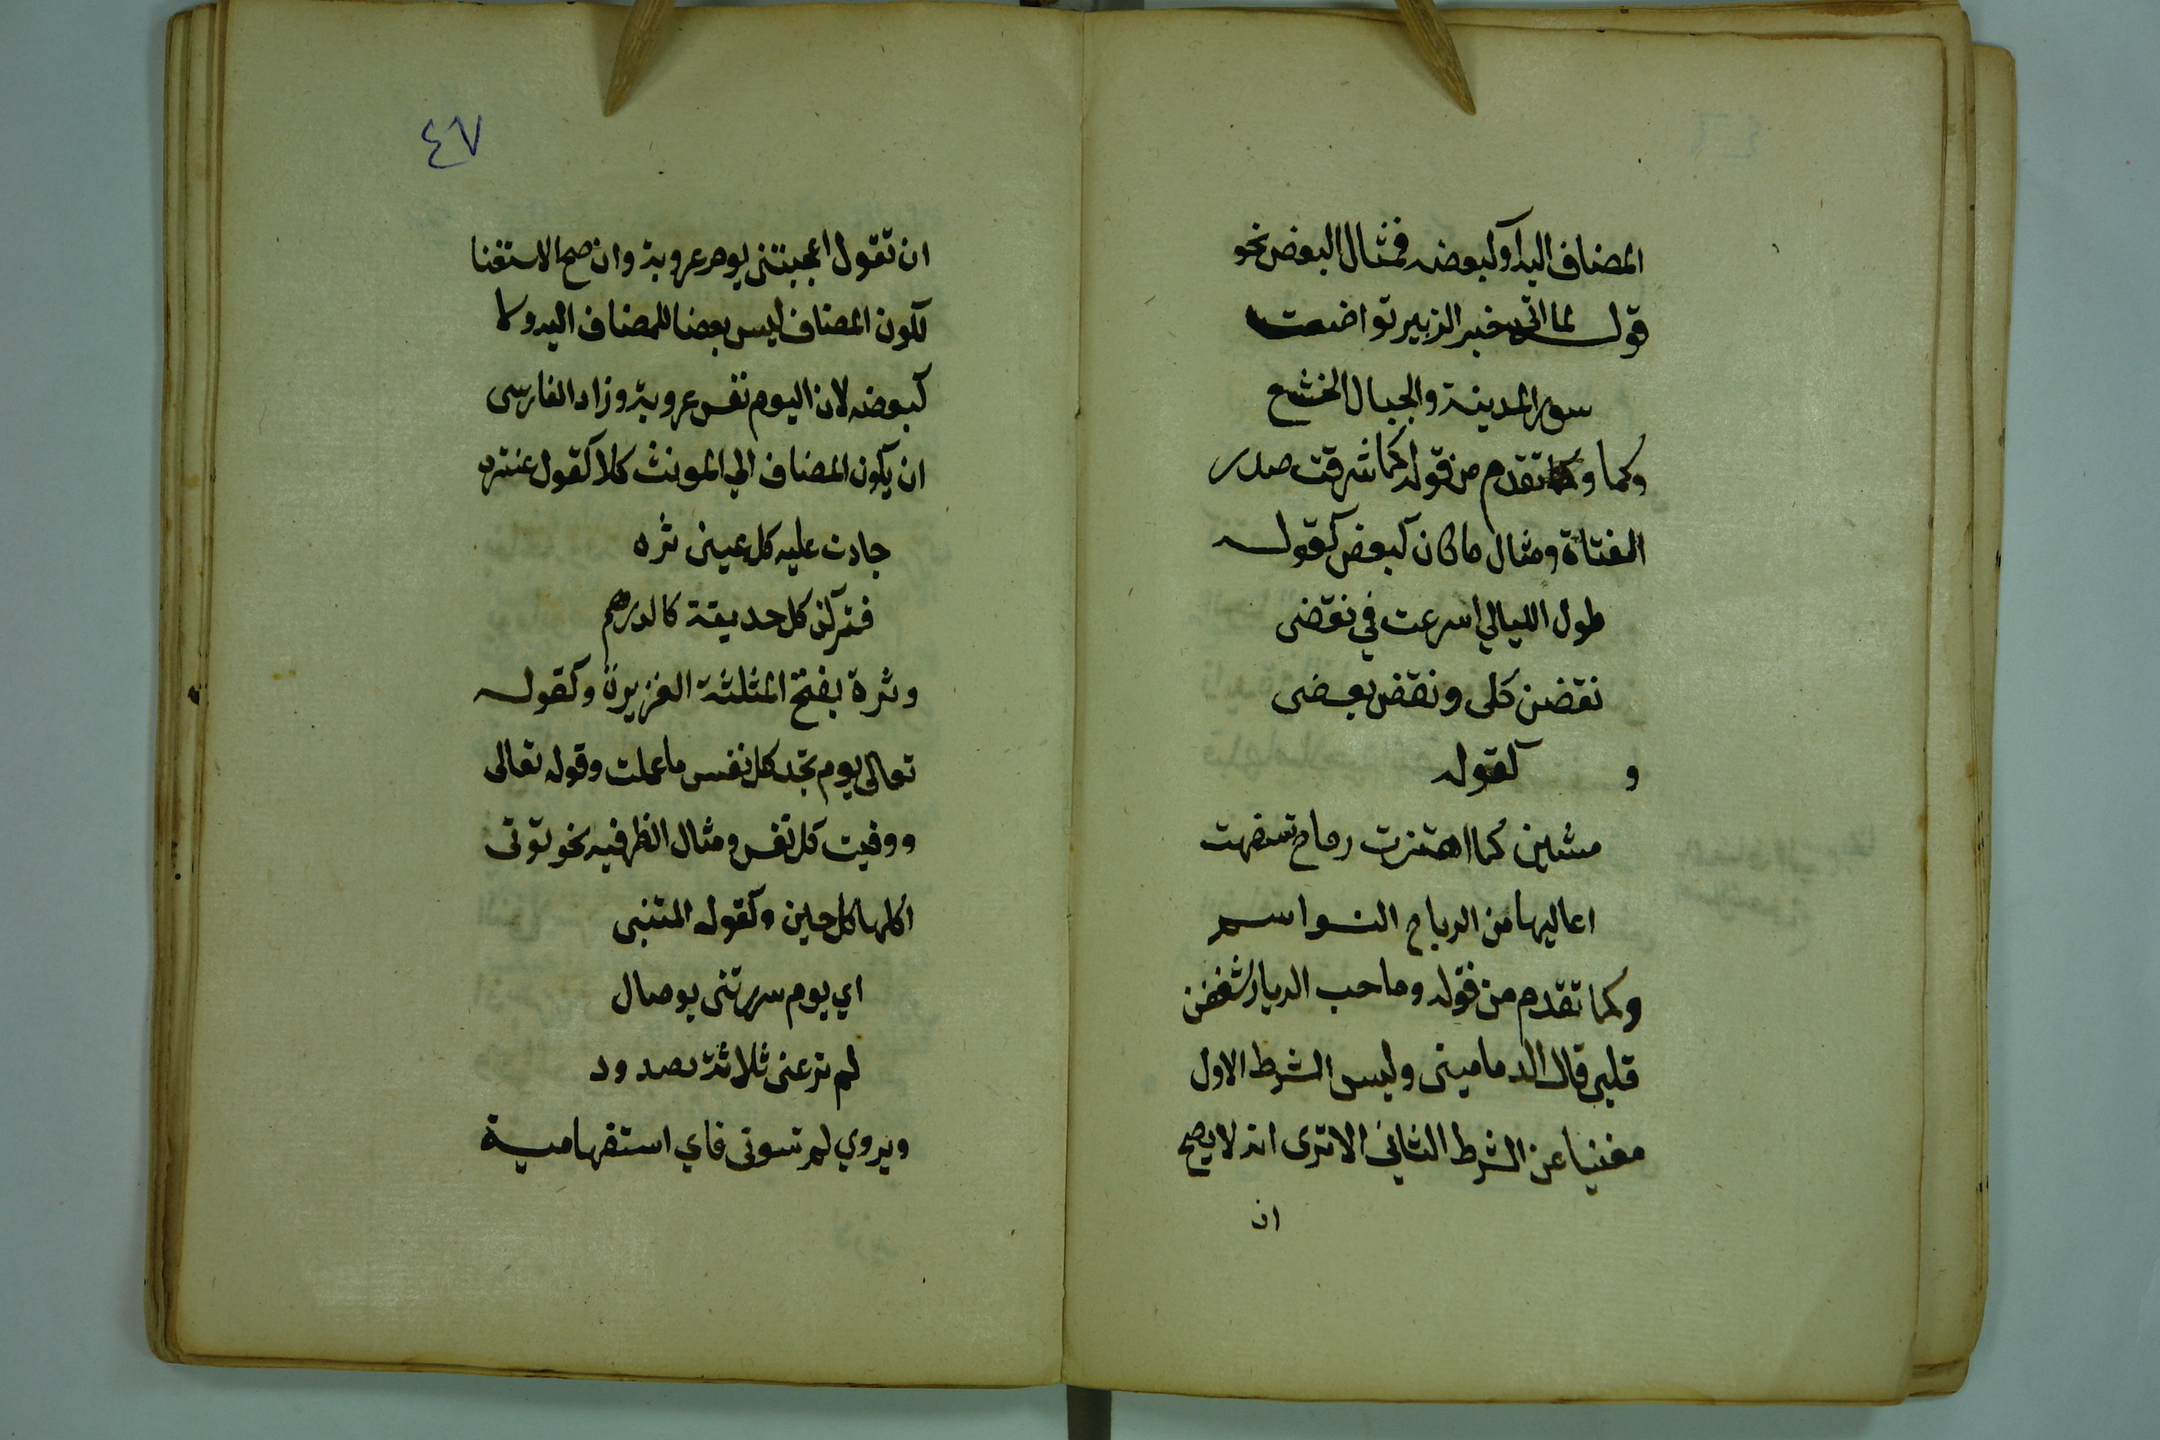 المضاف اليه او كبعضه فمثال البعض نحو
قوله لما اتى خبر الزبير تواضعت
سور المدينة والجبال الخشع
وكما وكما تقدم من قوله كما شرقت صدر
الفتاة ومثال ما كان كبعض كقوله
طول الليالي اسرعت في نقضى
نقضن كلى ونقضن بعضى
و كقوله
مشين كما اهتزت رماح تسفهت
اعاليها من الرياح النواسم
وكما تقدم من قوله وما حب الديار شغفن
قلبى قال الدمامينى وليس الشرط الاول
مغنيا عن الشرط الثانى الا ترى انه لا يصح
ان
٤٧
ان تقول اعجبتنى يوم عروبة وان صح الاستغنا
لكون المضاف ليس بعضا للمضاف اليه ولا
كبعضه لان اليوم نفس عروبة وزاد الفارسى
ان يكون المضاف الى المونث كلا كقول عنتره
جادت عليه كل عين ثره
فتركن كل حديقة كالدرهم
وثرة بفتح المثلثة الغزيرة وكقوله
تعالى يوم تجد كل نفس ما عملت وقوله تعالى
ووفيت كل نفس ومثال الظرفيه نحو توتى
اكلها كل حين وكقول المتنبى
اي يوم سررتنى بوصال
لم ترعنى ثلاثة بصدود
ويروي لم تسوتى فاي استفهامية